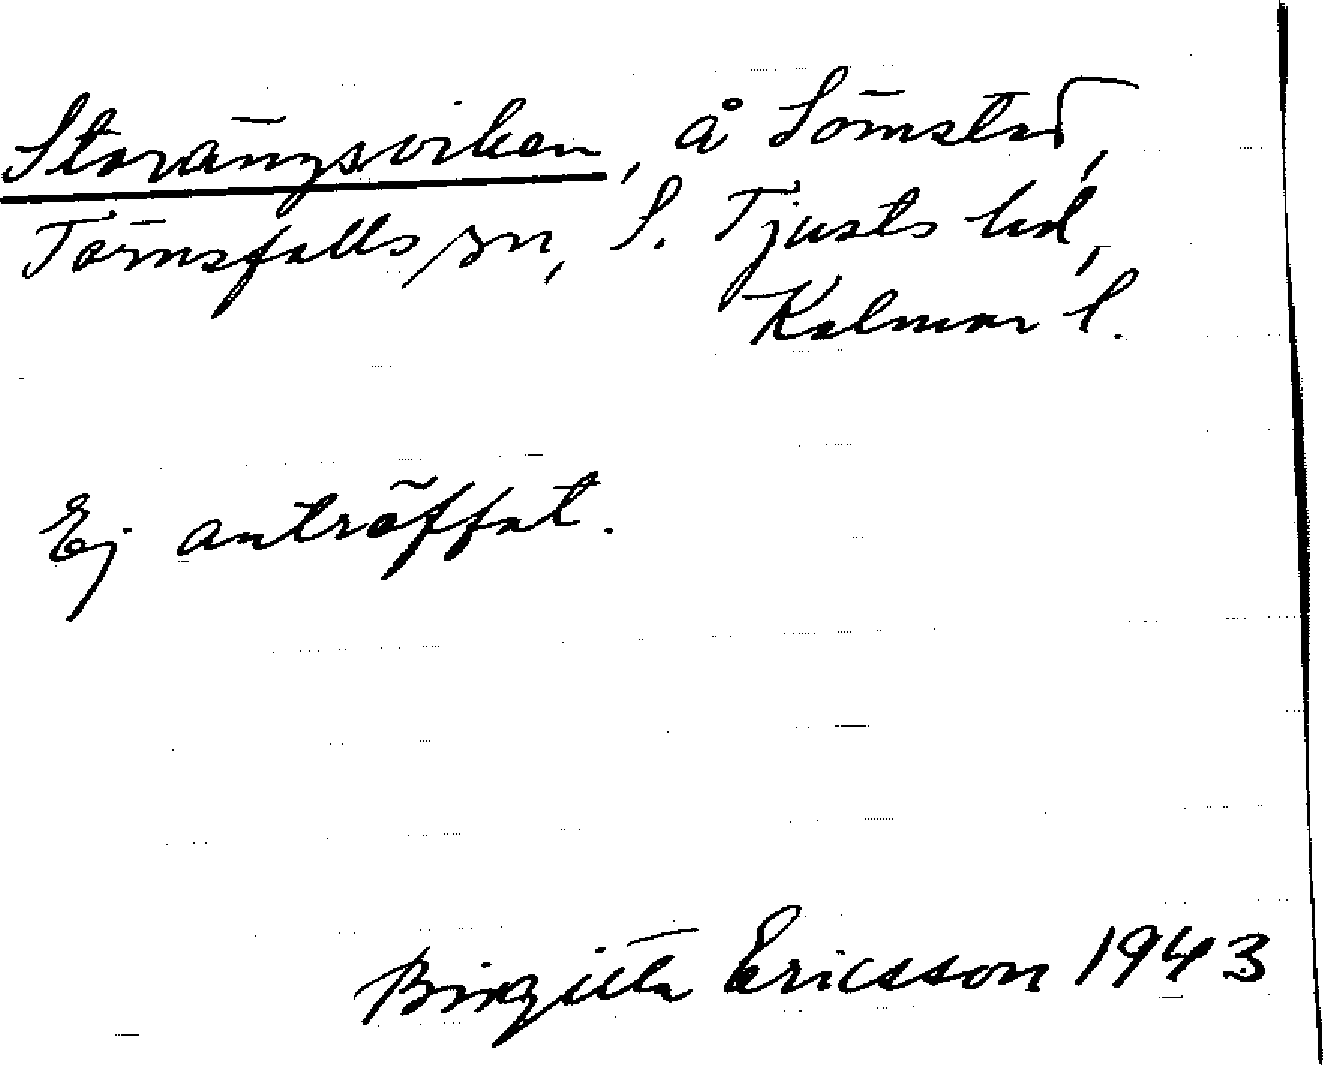 Storängsviken, å Sömstad,
Törnsfalls sn, S. Tjusts hd,
Kalmar l.
Ej anträffat.
Birgitta Ericsson 1943